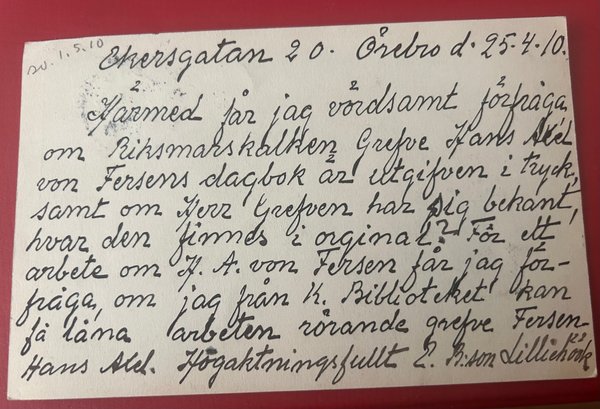 sv. 1.5.10
Ekersgatan 20. Örebro d. 25-4-10.
Härmed får jag vördsamt förfråga,
om Riksmarskalken Grefve Hans Axel
von Fersens dagbok är utgifven i tryck,
samt om Herr Grefven har sig bekant,
hvar den finnes i orginal? För ett
arbete om H. A. von Fersen får jag för-
fråga, om jag från K. Biblioteket kan
få låna arbeten rörande grefve Fersen
Hans Axel. Högaktningsfullt E. B:son Lilliehöök